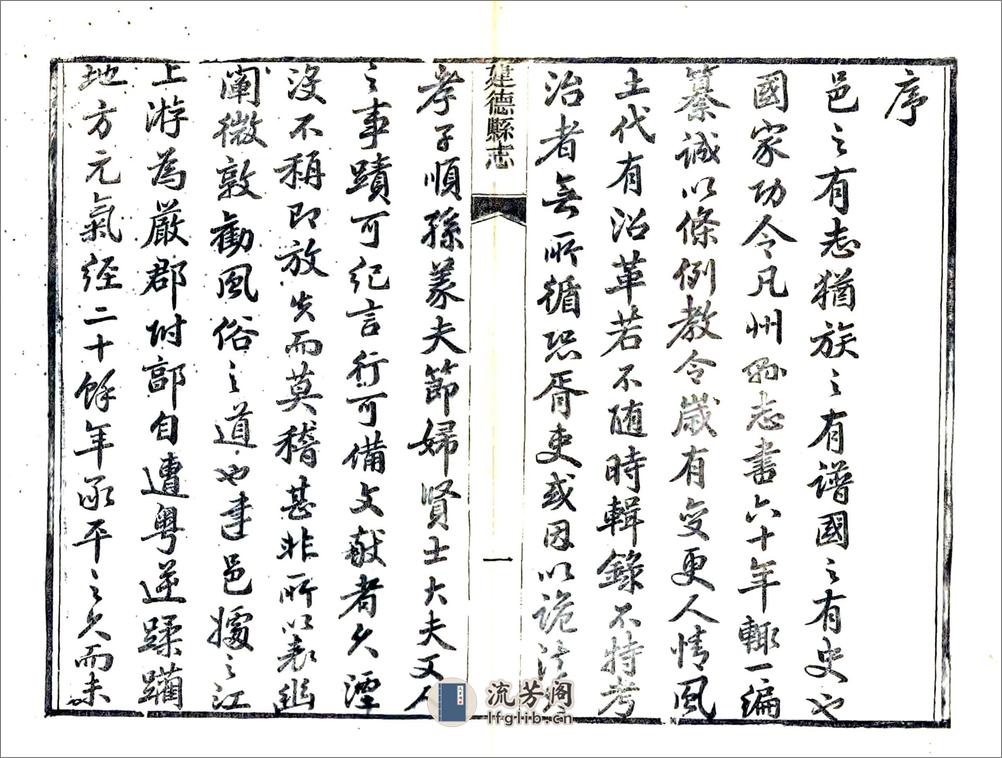 序
邑之有志猶族之有譜國之有史也
國家功令凡州縣志書六十年輒一編
纂誠以條例教令歲有變更人情風
土代有沿革若不随時輯錄不特考
治者無所循恐胥吏或因以詭法
建德縣志
一
孝子順孫義夫節婦賢士大夫文人
之事蹟可紀言行可備文献者久湮
沒不稱即放失而莫稽甚非所以表幽
闡微敦勸風俗之道也建邑據之江
上游為嚴郡附郭自遭粵逆蹂躪
地方元氣經二十餘年承平之久而未
流芳阁
lfglib.cn